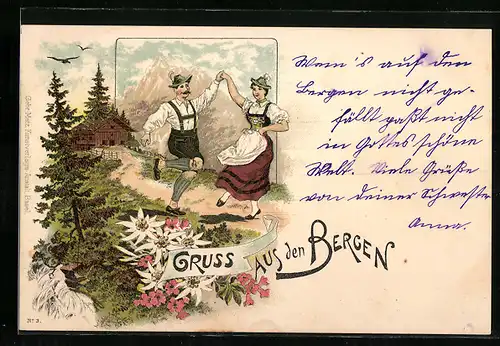 Wem's auf den
Bergen nicht ge-
fällt paßt nicht
in Gottes schöne
Welt. Viele Grüße
von deiner Schwester
Anna.
GRUSS AUS den BERGEN
No 3.